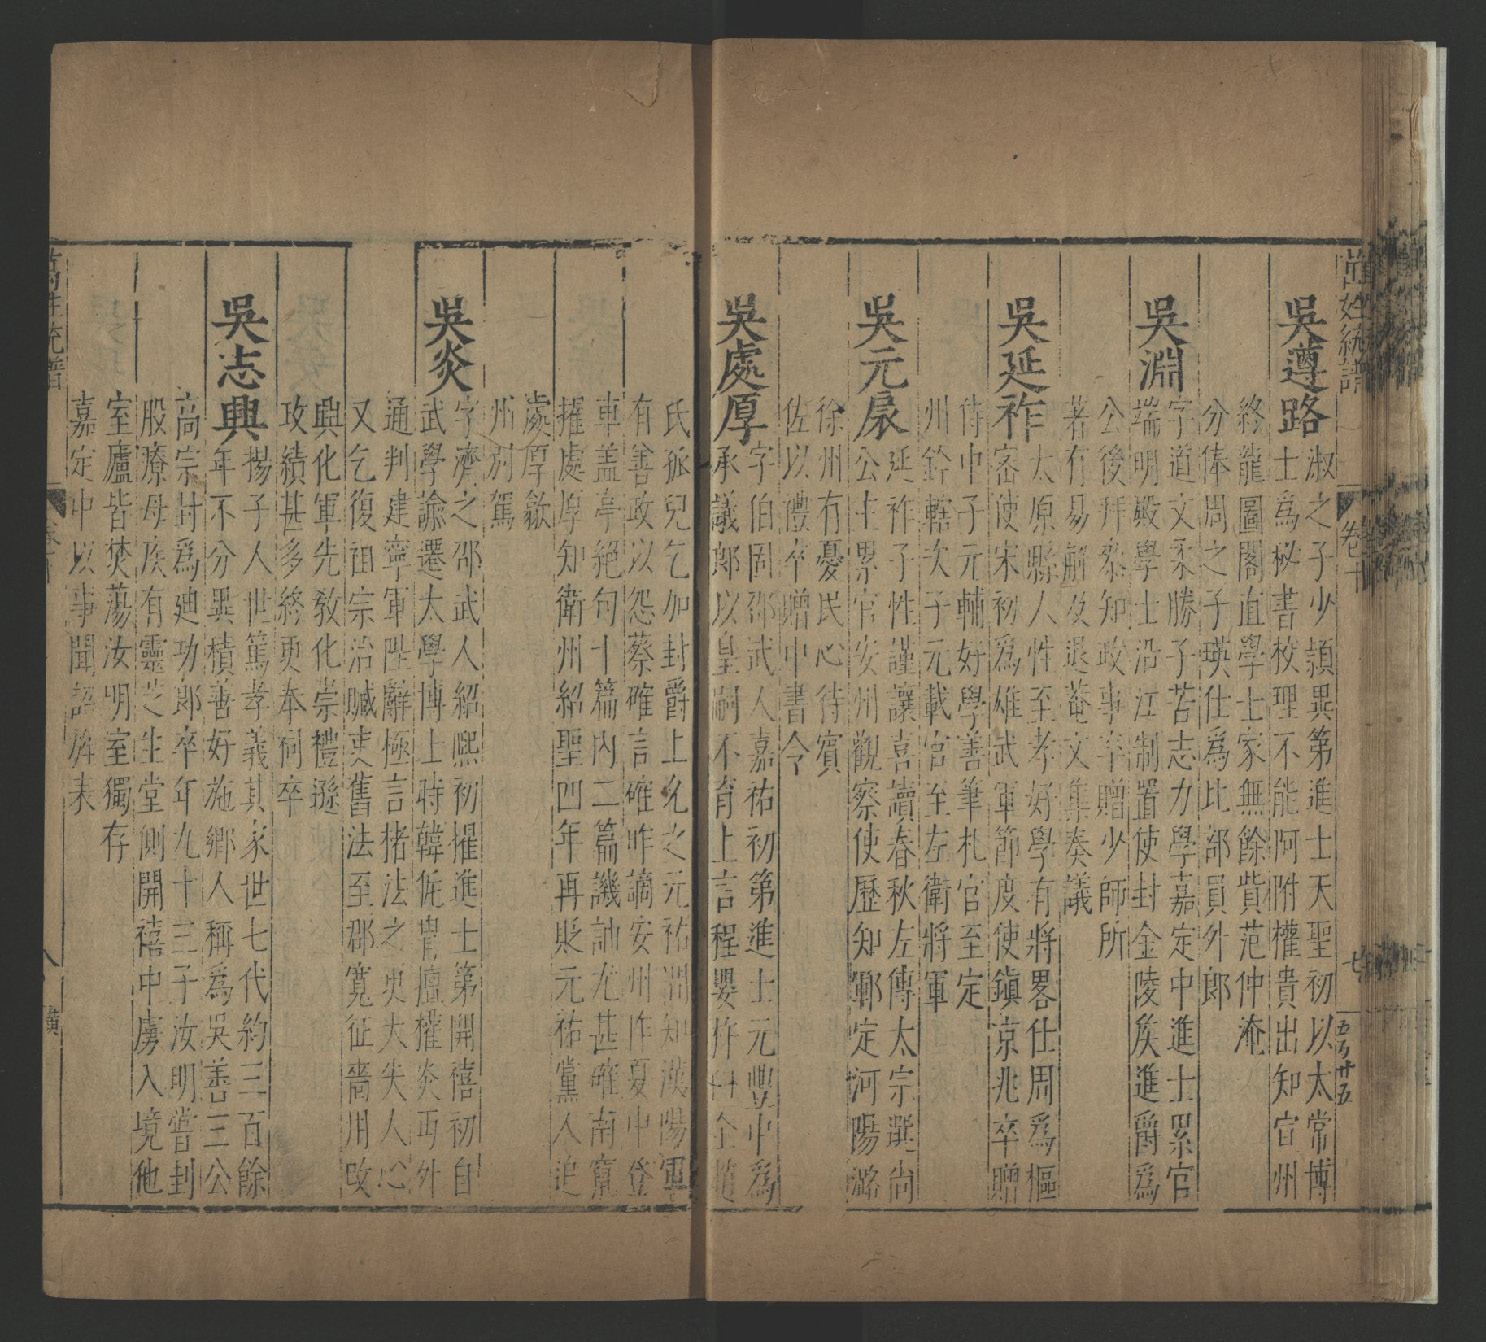 萬姓統譜
卷十
七
五乃廿五
吳遵路
淑之子少頴異第進士天聖初以太常博
士爲秘書校理不能阿附權貴出知宣州
終龍圖閣直學士家無餘貲范仲淹
分俸周之子瑛仕爲比部員外郎
吳淵
字道文柔勝子苦志力學嘉定中進士累官
端明殿學士沿江制置使封金陵矦進爵爲
公後拜叅知政事卒贈少師所
著有易解及退菴文集奏議
吳延祚
太原縣人性至孝好學有將畧仕周爲樞
密使宋初爲雄武軍節度使鎭京兆卒贈
侍中子元輔好學善筆札官至定
州鈐轄次子元載官至左衛將軍
吳元扆
延祚子性謹讓喜讀春秋左傳太宗選尚
公主累官安州觀察使歷知鄆定河陽潞
徐州有憂民心待賓
佐以禮卒贈中書令
吳處厚
字伯固邵武人嘉祐初第進士元豐中爲
承議郎以皇嗣不育上言程嬰杵臼全趙
氏孤兒乞加封爵上允之元祐間知漢陽軍
有善政以怨蔡確言確昨謫安州作夏中登
車盖亭絕句十篇內二篇譏訕尤甚確南竄
擢處厚知衛州紹聖四年再貶元祐黨人追
處厚歙
州別駕
吳炎
字濟之邵武人紹熙初擢進士第開禧初自
武學諭遷太學博士時韓侂冑擅權炎丏外
通判建寧軍陛辭極言楮法之更大失人心
又乞復祖宗治贓吏舊法至郡寬征嗇用攺
興化軍先敎化崇禮遜
攻績甚多終更奉祠卒
吳志興
揚子人世篤孝義其家世七代約三百餘
年不分異積善好施鄉人稱爲吳善三公
高宗封爲廸功郎卒年九十三子汝明嘗刲
股療母疾有靈芝生堂側開禧中虜入境他
室廬皆焚蕩汝明室獨存
嘉定中以事聞詔旌表
萬姓統譜